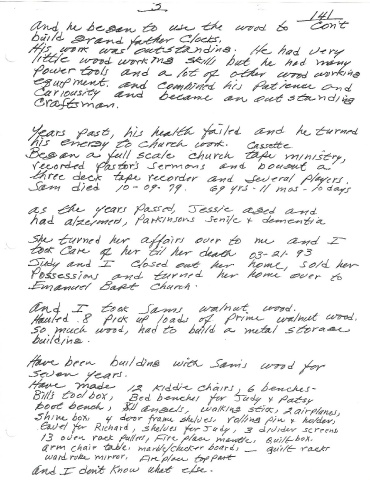 5
141
Con't
And he began to use the wood to
build grand father Clocks.
His work was outstanding. He had very
little wood working skill but he had many
power tools and a lot of other wood working
equipment. and combined his Patience and
Cariousity and became an out standing
Craftsman.
Years past, his health failed and he turned
his energy to church work. Cassette
Began a full scale church tape ministry,
recorded Pastors Sermons and bought a
three deck tape recorder and several players.
Sam died 10-09-79. 69 yrs-11 mos-10 days
as the years passed, Jessie aged and
had alzeimer, Parkinsons Senile & dementia
She turned her affairs over to me and I
took Care of her til her death 03-21-93
Judy and I closed out her home, sold her
Possessions and turned her home over to
Emanuel Bapt Church.
And I took Sams walnut wood.
Hauled 8 Pick up loads of Prime walnut wood.
so much wood, had to build a metal storage
building.
Have been building with Sam's wood for
Seven years.
Have made 12 Kiddie chairs, 6 benches-
Bills tool box, Bed benches for Judy & Patsy
boot bench, angels, walking stick, 2 airplanes,
Shine box, 4 door frame shelves, rolling pin & holder,
for Richard, shelves for Judy, 3 divider screens
13 oven rack pullers, Fire place mantle, quilt box.
arm chair table, marble/checker board, - quilt rack
wardrobe mirror, Fireplace top part
and I don't know what else.